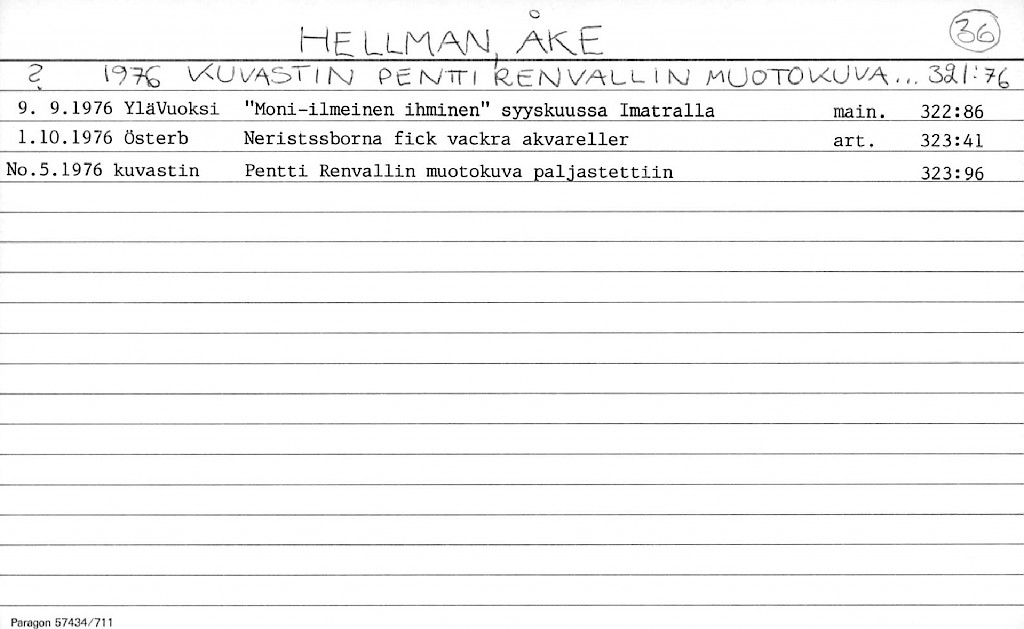 HELLMAN, ÅKE 36
? 1976 KUVASTIN PENTTI RENVALLIN MUOTOKUVA... 321:76
9. 9.1976 YläVuoksi "Moni-ilmeinen ihminen" syyskuussa Imatralla main. 322:86
1.10.1976 Österb Neristssborna fick vackra akvareller art. 323:41
No.5.1976 kuvastin Pentti Renvallin muotokuva paljastettiin 323:96
Paragon 57434/711